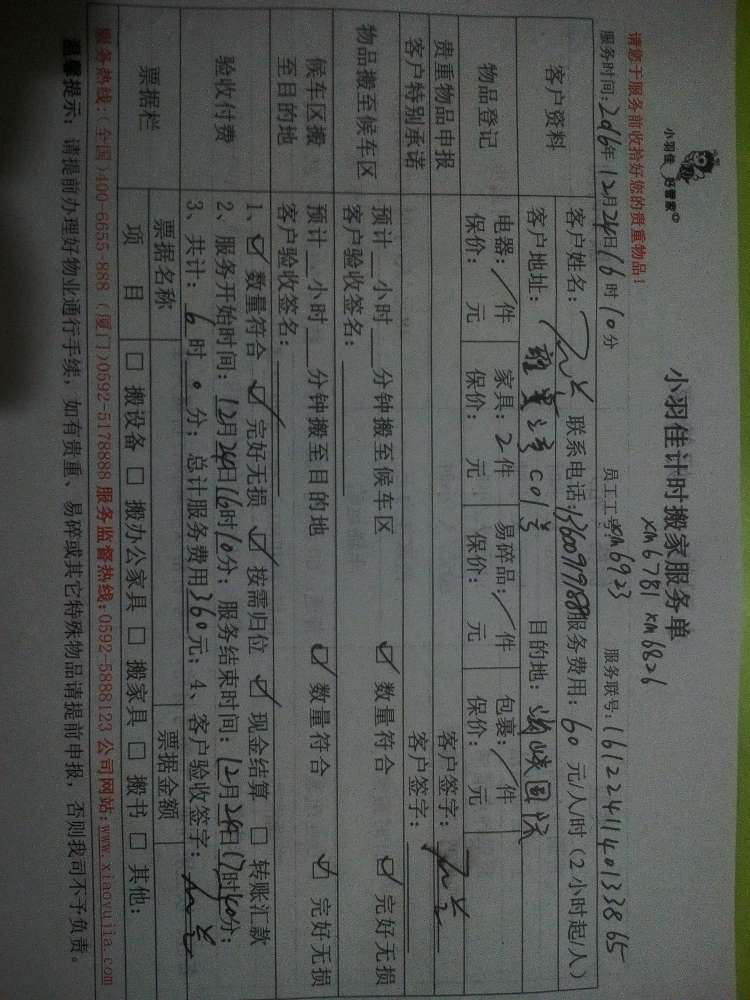 小羽佳 好管家
小羽佳计时搬家服务单
请您于服务前收拾好您的贵重物品!
xm6781 xm6826
服务时间:2016年12月24日16时10分 员工工号xm6923 服务联号:1612241140133865
客户资料
客户姓名: 联系电话: 服务费用:60元/人/时(2小时起/人)
客户地址: C01号 目的地:
物品登记
电器:/件 家具:2件 易碎品:/件 包裹:/件
保价: 元 保价: 元 保价: 元 保价: 元
贵重物品申报 客户签字:
客户特别承诺 客户签字:
物品搬至候车区
预计__小时__分钟搬至候车区 ☑ 数量符合 ☑ 完好无损
客户验收签名:
候车区搬至目的地
预计__小时__分钟搬至目的地 ☑ 数量符合 ☑ 完好无损
客户验收签名:
验收付费
1、☑ 数量符合 ☑ 完好无损 ☑ 按需归位 ☑ 现金结算 □ 转账汇款
2、服务开始时间:12月24日16时10分;服务结束时间:12月24日17时40分;
3、共计:6时0分;总计服务费用360元;4、客户验收签字:
票据栏
票据名称 票据金额
项 目 □ 搬设备 □ 搬办公家具 □ 搬家具 □ 搬书 □ 其他:
服务热线:(全国)400-6655-888 (厦门)0592-5178888 服务监督热线:0592-5888123 公司网站:www.xiaoyujia.com
温馨提示:请提前办理好物业通行手续,如有贵重、易碎或其它特殊物品请提前申报,否则我司不予负责。